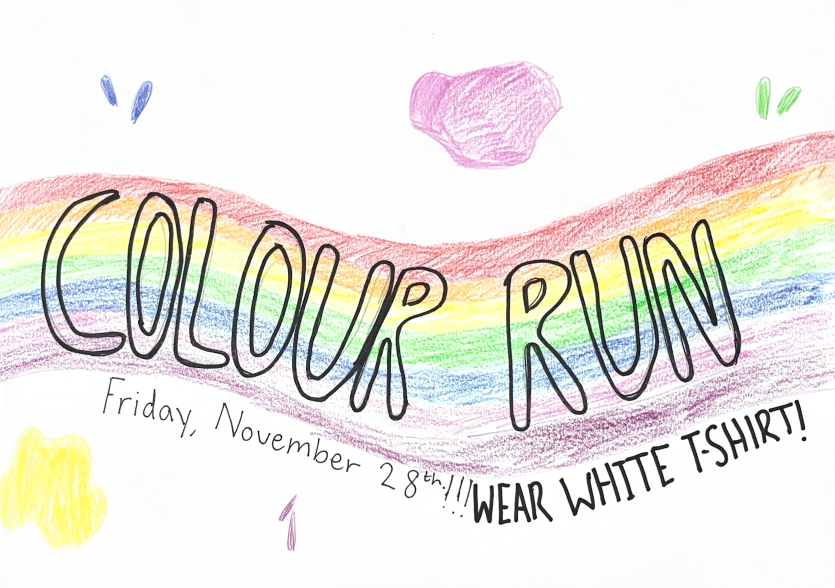 COLOUR RUN
Friday, November 28th!!!
WEAR WHITE T-SHIRT!